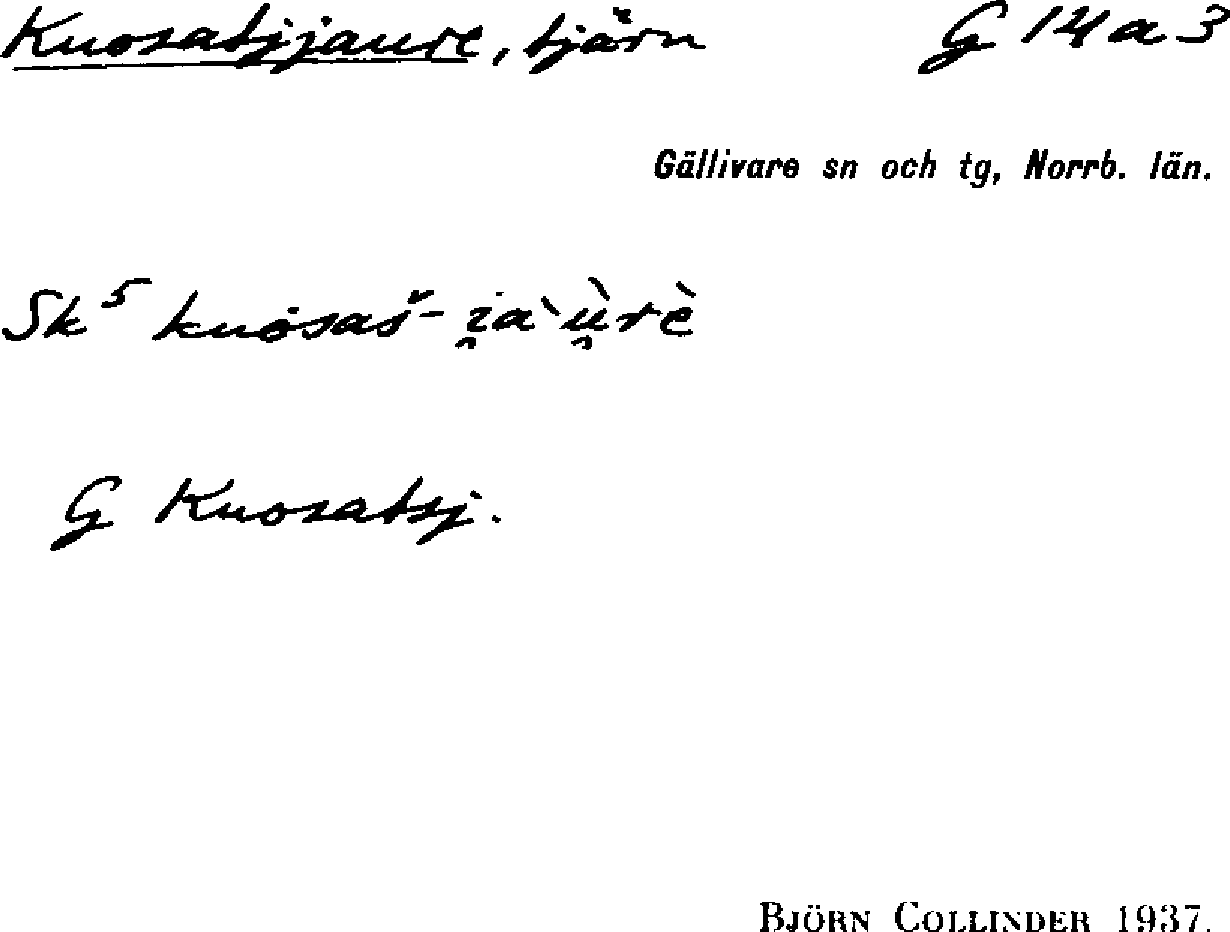 Kuosatjjaure, tjärn G 14 a 3
Gällivare sn och tg, Norrb. län.
Sk⁵ kuȯsaš- i̯a`ù̯rè
G Kuosatsj.
BJÖRN COLLINDER 1937.